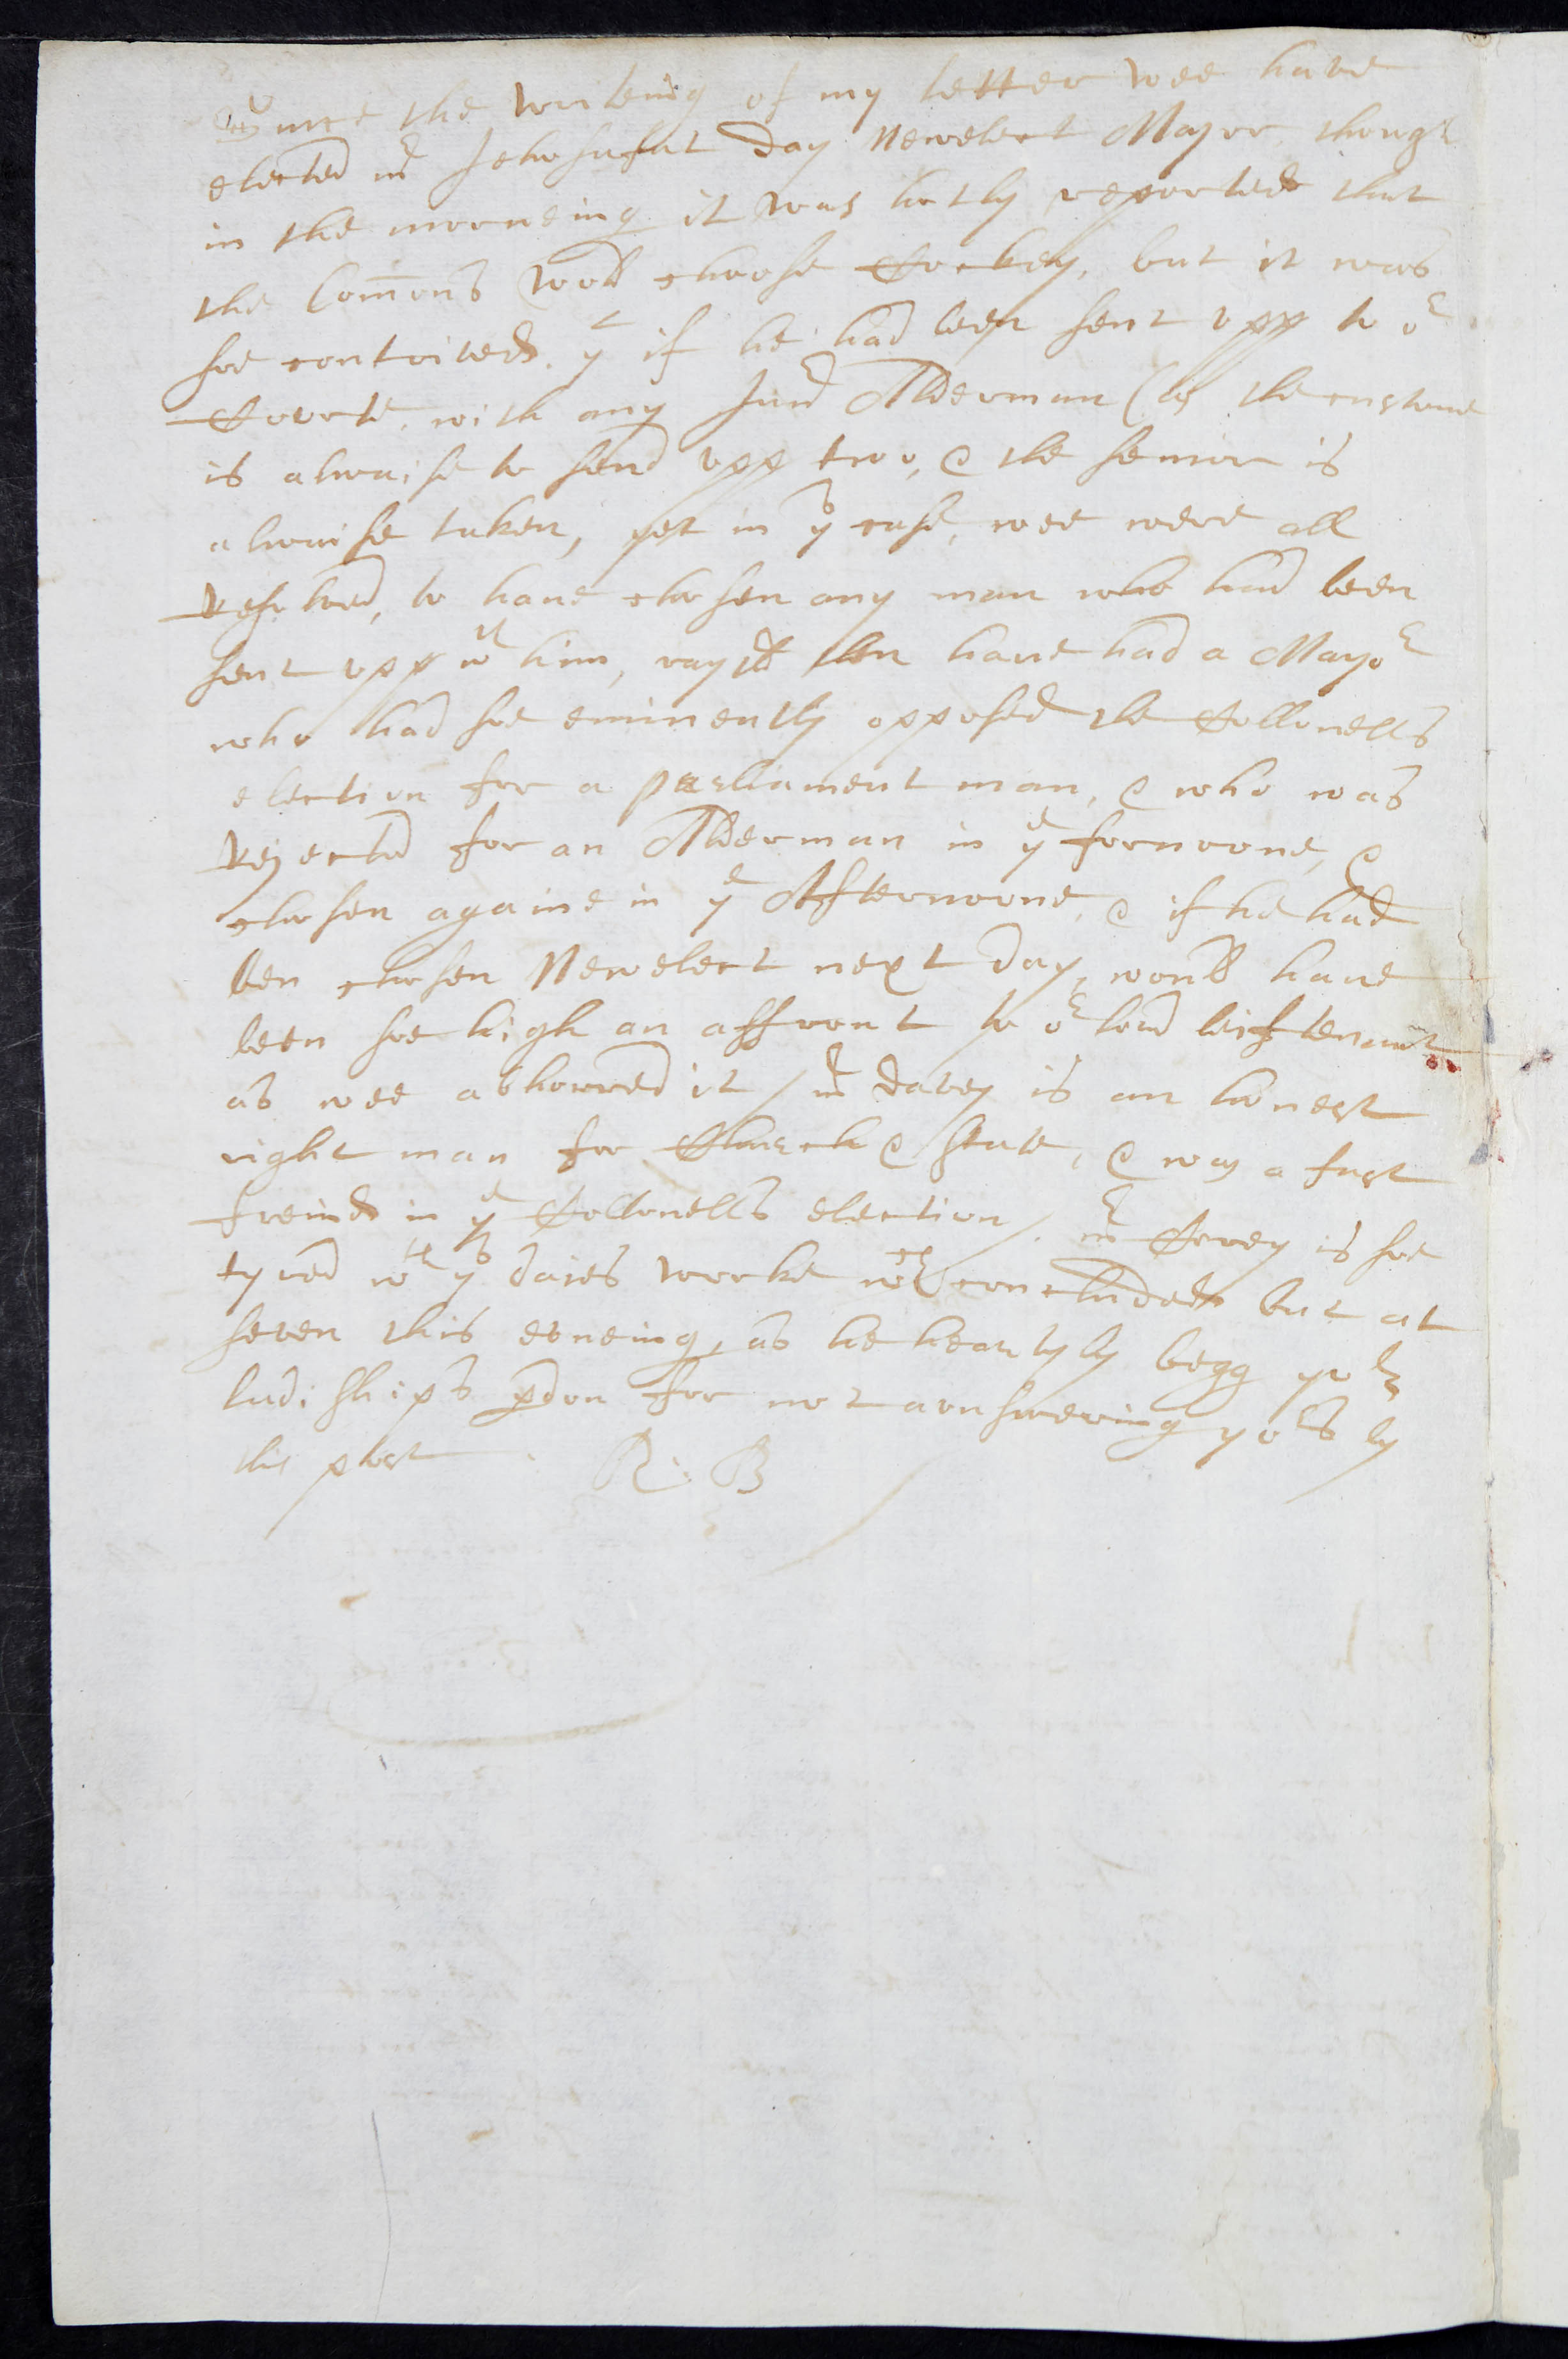 Since the writeing of my letter wee have
elected mr Jehosafat Davy Newelect Mayor, though
in the morneing it was hotly reported that
the Com̄ons wod choose Cockey, but it was
soe contrived. yt if he had been sent upp to or
Courte, with any Junr Alderman (as the custome
is alwaise to send upp two, & the senior is
alwaise taken, yet in ys case, wee were all
Resolved, to have chosen any man who had been
sent upp wth him, to have had a Mayor
who had soe eminently opposed the Collonells
election for a parliament man, & who was
Rejected for an Alderman in ye fornoone, &
chosen againe in ye Afternoone, & if he had
ben chosen Newelect next day, would have
been soe high an affront to or lord leiftenant
as wee abhorred it / mr Davey is an honest
right man for Church & State, & was a fast
freind in ye Collonells election /. mr Corey is soe
tyred wth ys daies worke wch concluded but at
seven this eveneing, as he heartyly begg yor
ladiships pdon for not aunswering yors by
this post. R: B